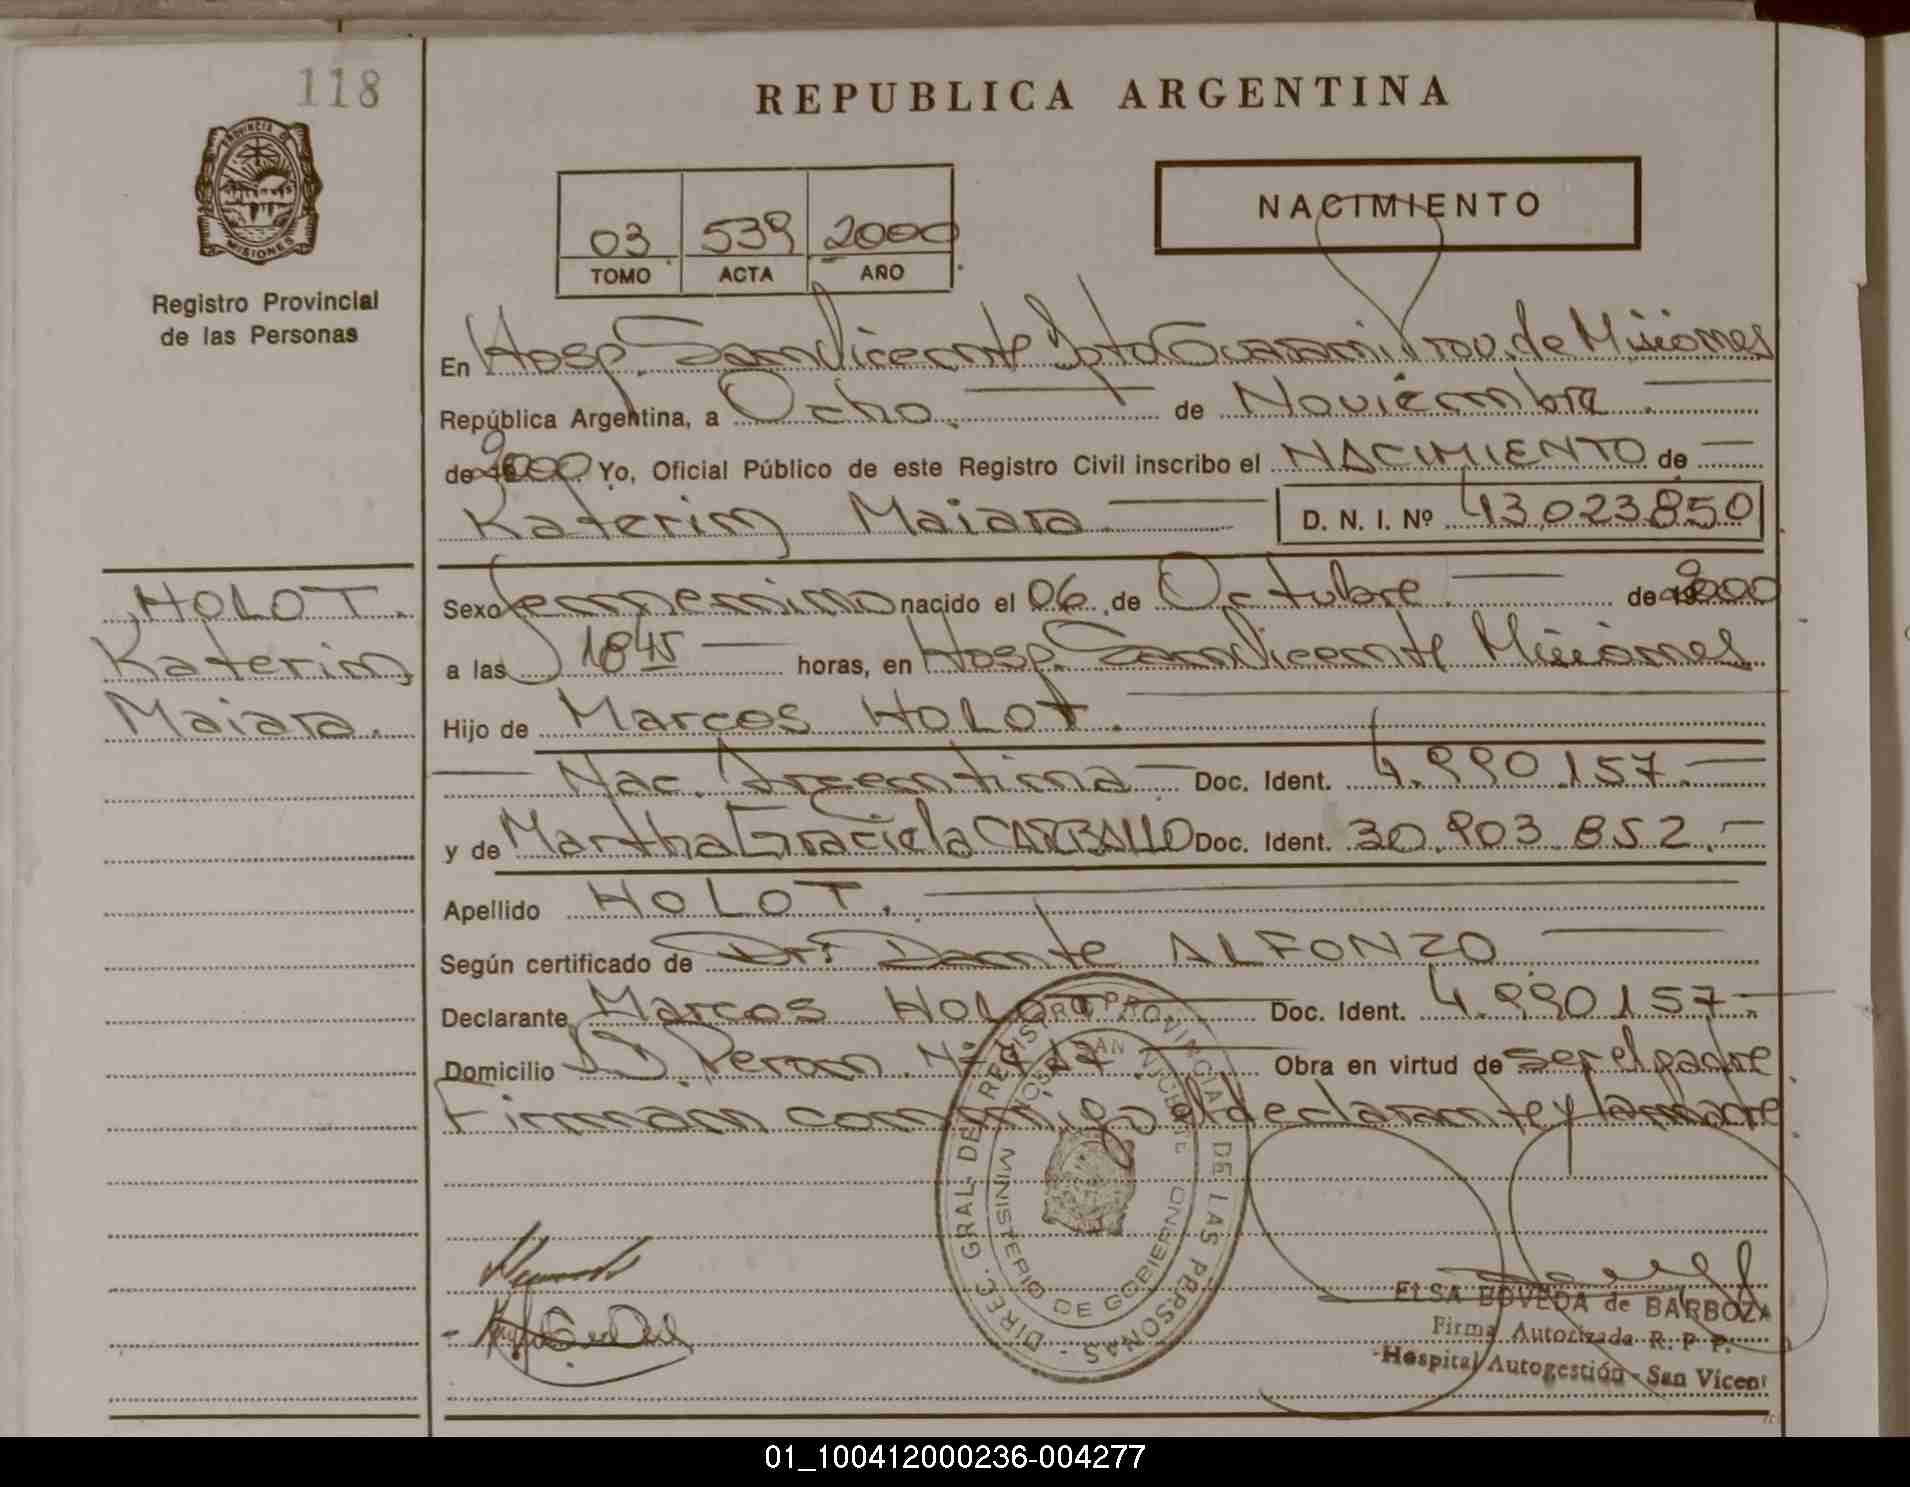 118
REPUBLICA ARGENTINA
PROVINCIA DE MISIONES
Registro Provincial
de las Personas
NACIMIENTO
03 539 2000
TOMO ACTA AÑO
En Hosp. San Vicente Dpto Guarani Prov. de Misiones
República Argentina, a Ocho de Noviembre
de 2000 Yo, Oficial Público de este Registro Civil inscribo el NACIMIENTO de
Katerin Maiara D. N. I. Nº 43.023.850
HOLOT.
Katerin
Maiara.
Sexo femenino nacido el 06 de Octubre de 2000
a las 18 45 horas, en Hosp. San Vicente Misiones
Hijo de Marcos HOLOT.
Nac. Argentina Doc. Ident. 4.990.157.
y de Martha Graciela CARBALLO Doc. Ident. 30.903.852.
Apellido HOLOT.
Según certificado de Dr. Dante ALFONZO
Declarante Marcos HOLOT Doc. Ident. 4.990.157.
Domicilio Peron Obra en virtud de ser el padre
Firman conmigo el declarante y la madre
DIREC. GRAL. DEL REGISTRO PROVINCIAL DE LAS PERSONAS
MINISTERIO DE GOBIERNO
HOSP. SAN VICENTE
ELSA BOVEDA de BARBOZA
Firma Autorizada R. P. P.
Hospital Autogestión - San Vicent
01_100412000236-004277